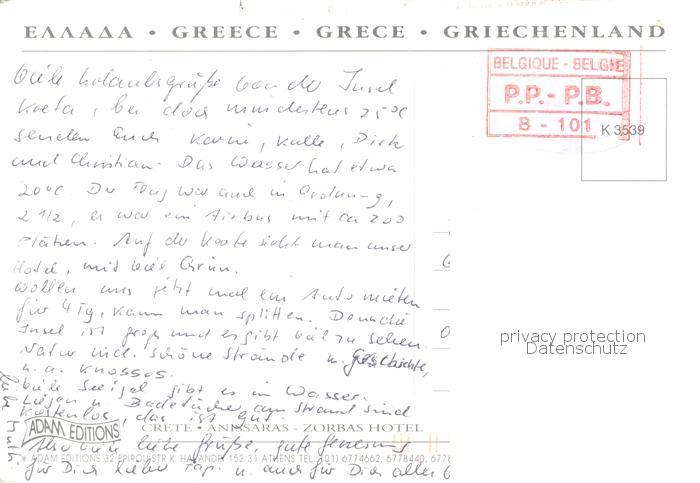 ΕΛΛΑΔΑ • GREECE • GRECE • GRIECHENLAND
BELGIQUE - BELGIE
P.P. - P.B.
B - 101
K 3539
Viele Urlaubsgrüße von der Insel
Kreta, bei das mindestens 25°C
senden Euch Karin, Kalle, Dirk
und Christian. Das Wasser hat etwa
20°C. Der Flug war auch in Ordnung,
2 1/2, es war ein Airbus mit ca 200
Plätzen. Auf der Karte sieht man unser
Hotel, mit viel Grün.
Wollen uns jetzt mal ein Auto mieten
für 4 Tg, kann man splitten. Denn die
Insel ist groß und es gibt viel zu sehen.
Natur incl. schöne Strände u. Geschichte,
u.a. Knossos.
Viele Seeigel gibt es im Wasser.
Liegen u. Badetücher am Strand sind
kostenlos, das ist gut.
Also viele liebe Grüße, gute Genesung
für Dich lieber Papi u. auch für Dich alles
privacy protection
Datenschutz
ADAM EDITIONS
CRETE • ANISSARAS - ZORBAS HOTEL
® ADAM EDITIONS 32 EPIROU STR K. HALANDRI 152 31 ATHENS TEL. (01) 6774662, 6778440, 677